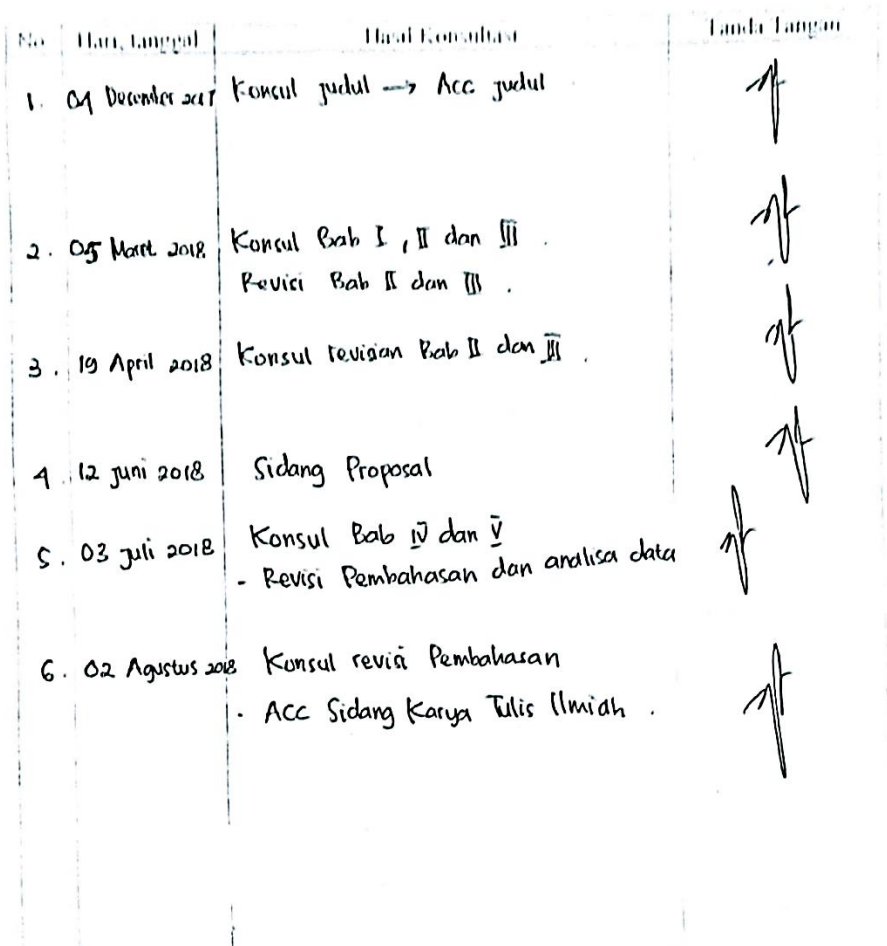 No Hari, tanggal Hasil Konsultasi Tanda Tangan
1. 04 Desember 2017 Konsul judul → Acc judul
2. 05 Maret 2018 Konsul Bab I, II dan III.
Revisi Bab II dan III.
3. 19 April 2018 Konsul revisian Bab II dan III.
4. 12 Juni 2018 Sidang Proposal
5. 03 Juli 2018 Konsul Bab IV dan V
- Revisi Pembahasan dan analisa data
6. 02 Agustus 2018 Konsul revisi Pembahasan
- ACC Sidang Karya Tulis Ilmiah.